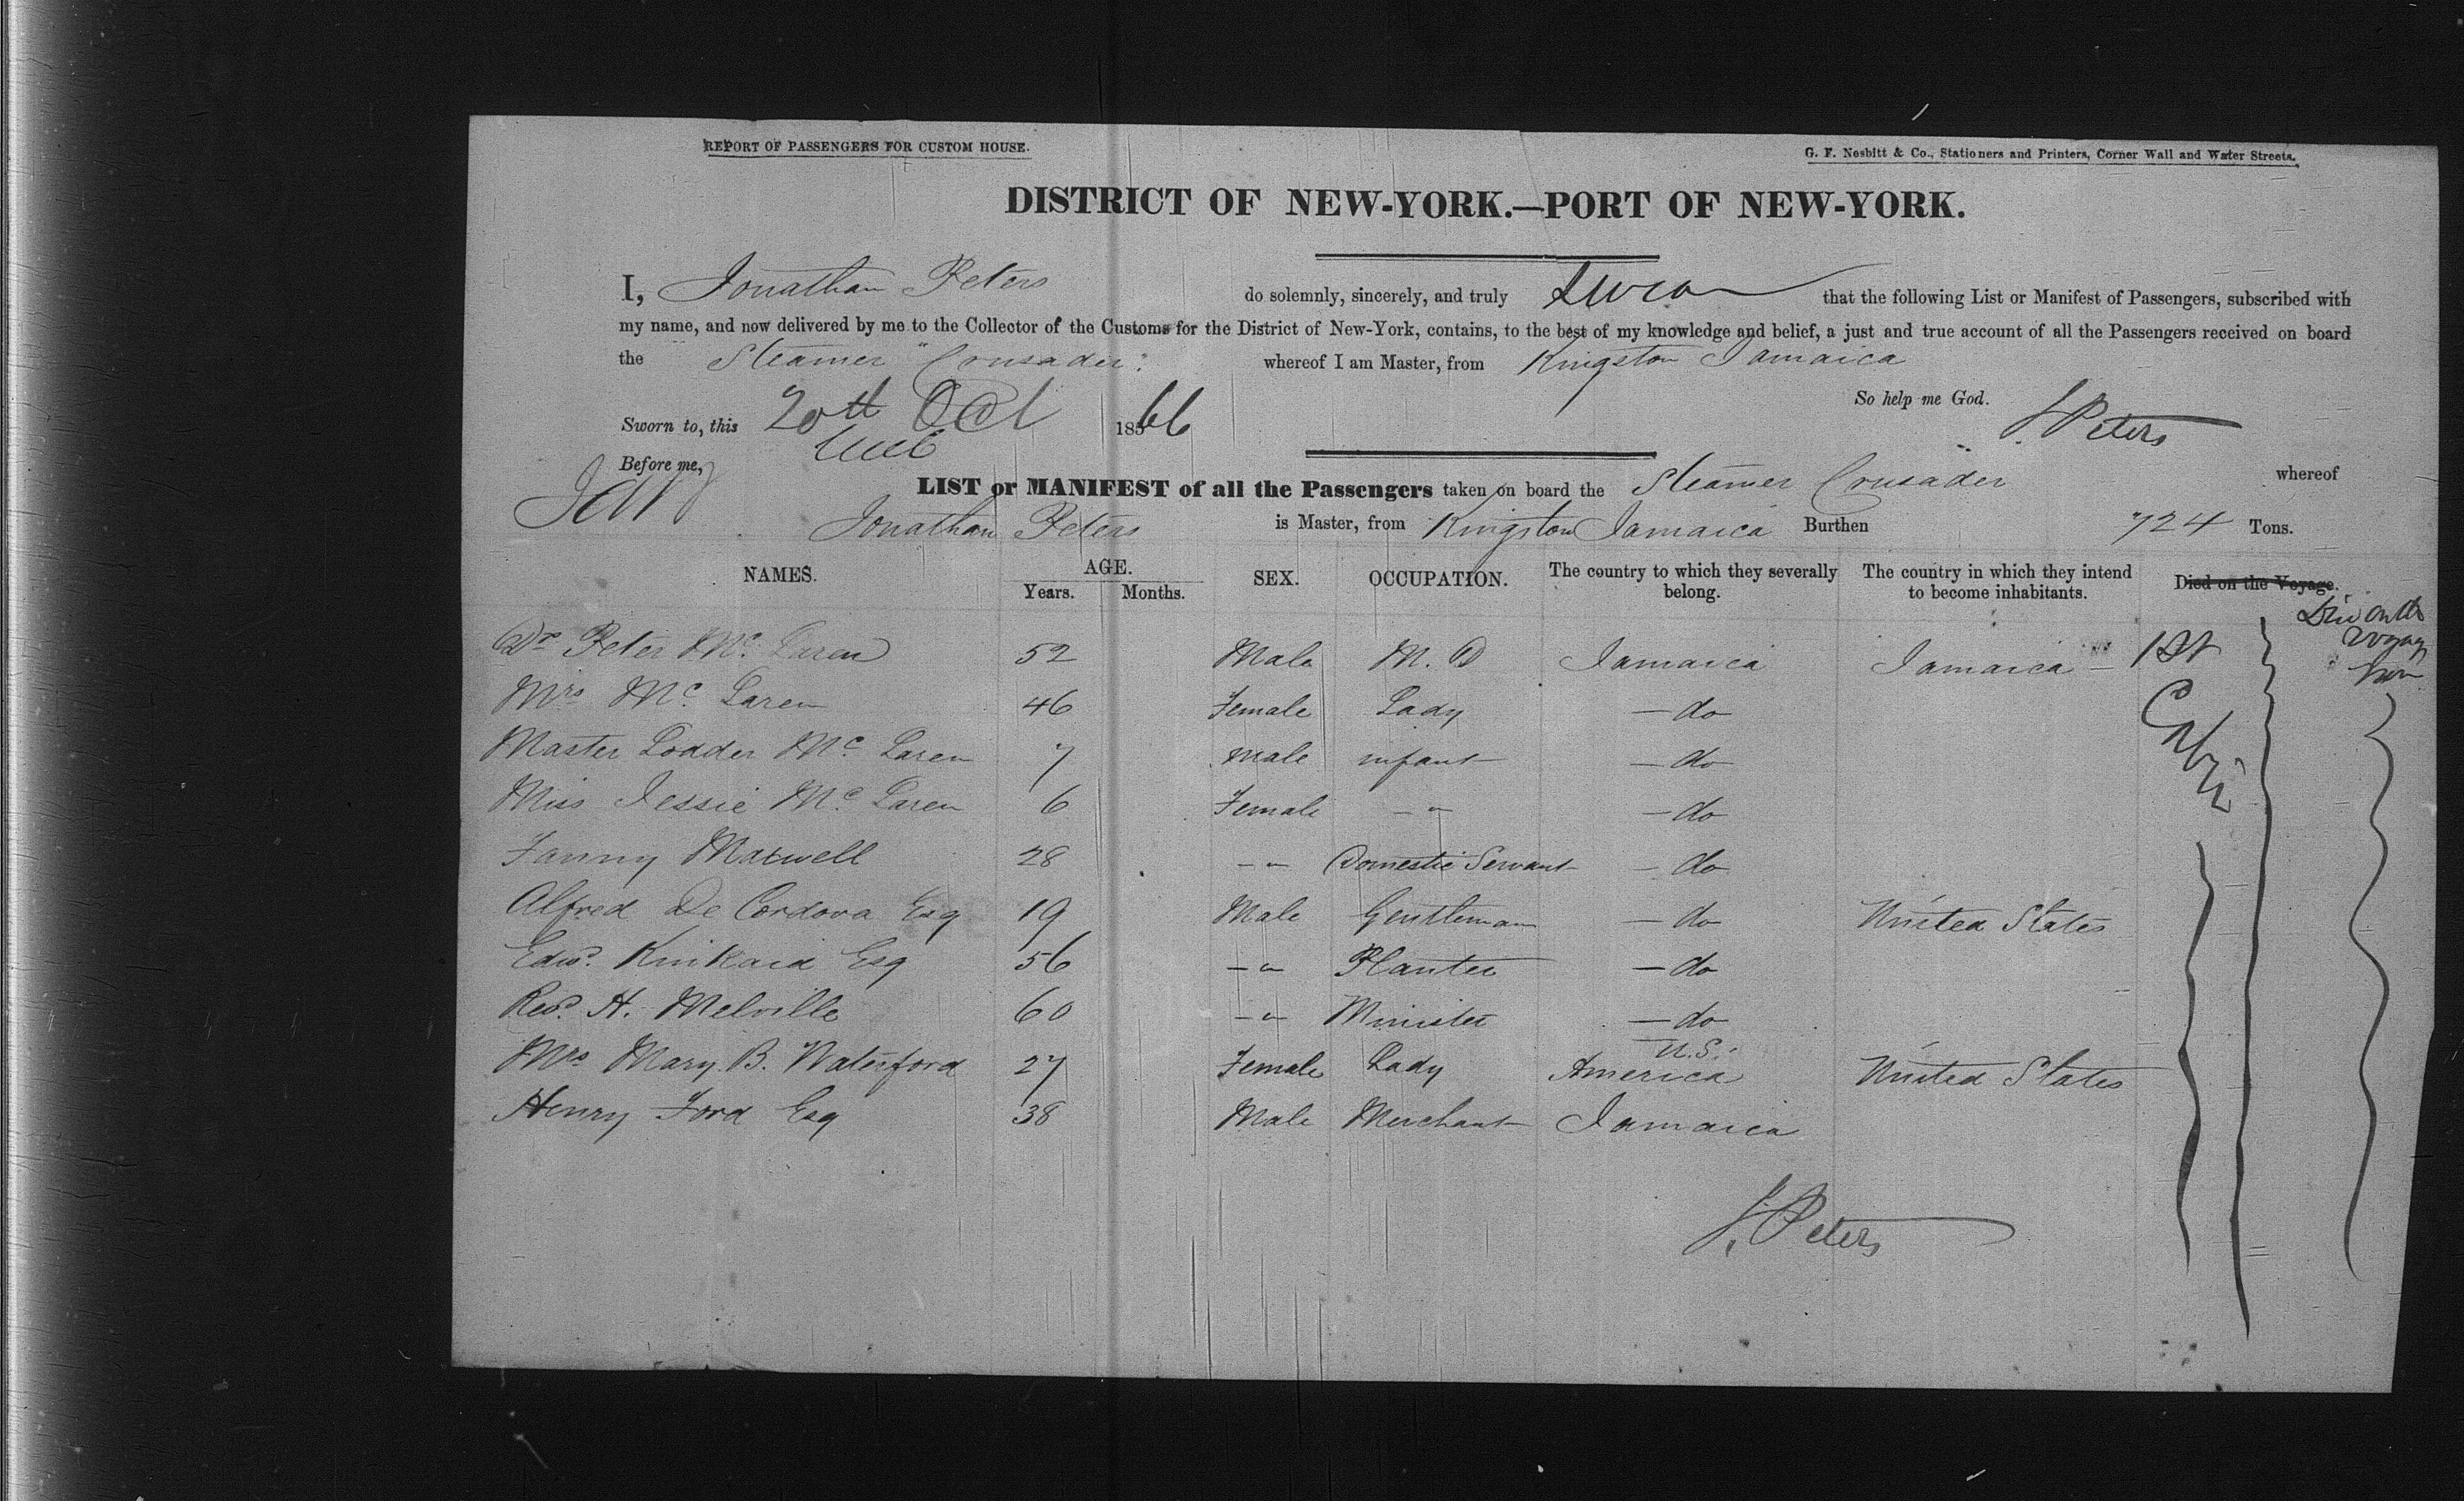 REPORT OF PASSENGERS FOR CUSTOM HOUSE.
G. F. Nesbitt & Co., Stationers and Printers, Corner Wall and Water Streets.
DISTRICT OF NEW-YORK.—PORT OF NEW-YORK.
I, Jonathan Peters do solemnly, sincerely, and truly Swear that the following List or Manifest of Passengers, subscribed with
my name, and now delivered by me to the Collector of the Customs for the District of New-York, contains, to the best of my knowledge and belief, a just and true account of all the Passengers received on board
the Steamer "Crusader". whereof I am Master, from Kingston Jamaica
So help me God.
Sworn to, this 20th Oct 1866 J. Peters
Before me,
LIST or MANIFEST of all the Passengers taken on board the Steamer Crusader whereof
Jonathan Peters is Master, from Kingston Jamaica Burthen 724 Tons.
NAMES. AGE. Years. Months. SEX. OCCUPATION. The country to which they severally belong. The country in which they intend to become inhabitants. Died on the Voyage.
Died on the
voyage
non
Dr Peter Mc. Laren 52 Male M. D Jamaica Jamaica — 1st
Mrs Mc. Laren 46 Female Lady — do Cabin
Master Lodder Mc Laren 7 male infant — do
Miss Jessie Mc Laren 6 Female — " — do
Fanny Maxwell 28 — " Domestic Servant — do
Alfred De Cordova Esq 19 Male Gentleman — do United States
Edwd. Kinkaid Esq 56 — " Planter — do
Revd. H. Melville 60 — " Minister — do
U.S.
Mrs Mary B. Waterford 27 Female Lady America United States
Henry Ford Esq 38 Male Merchant Jamaica
J. Peters